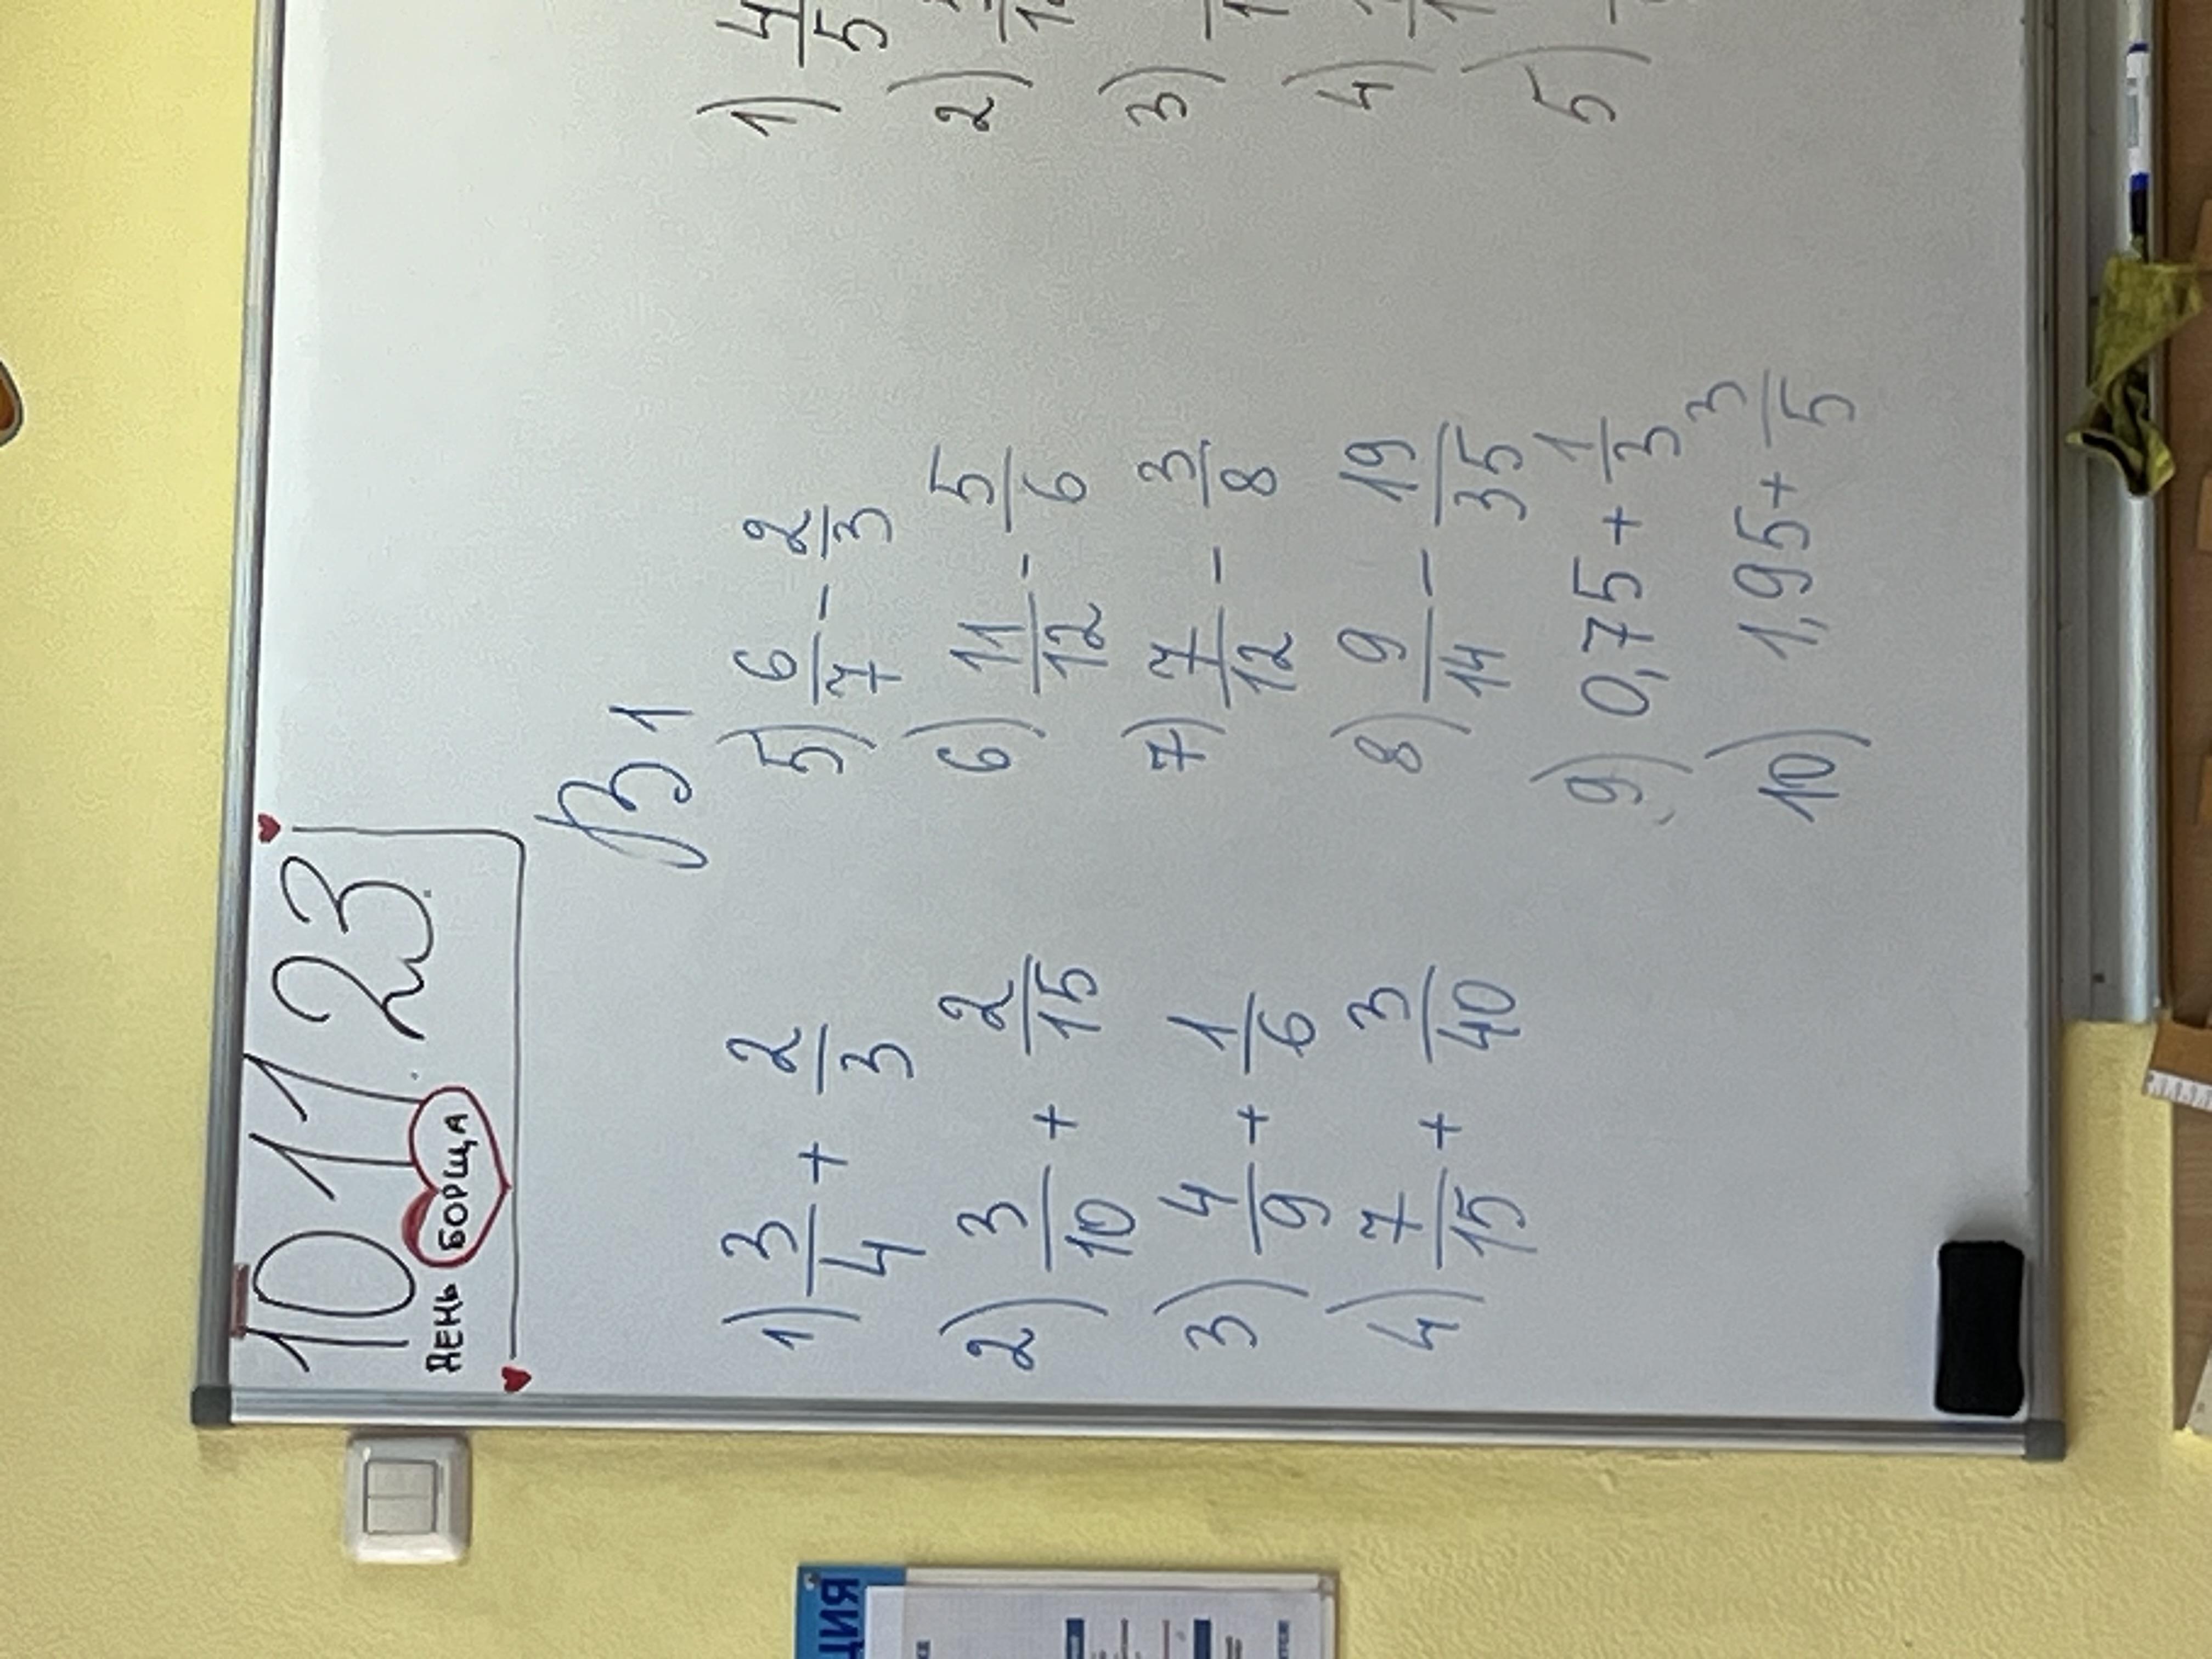 10.11.23.
ДЕНЬ БОРЩА
В 1
1) 3/4 + 2/3
2) 3/10 + 2/15
3) 4/9 + 1/6
4) 7/15 + 3/40
5) 6/7 - 2/3
6) 11/12 - 5/6
7) 7/12 - 3/8
8) 9/14 - 19/35
9) 0,75 + 1/3
10) 1,95 + 3/5
1) 4/5
2)
3)
4)
5)
ЦИЯ